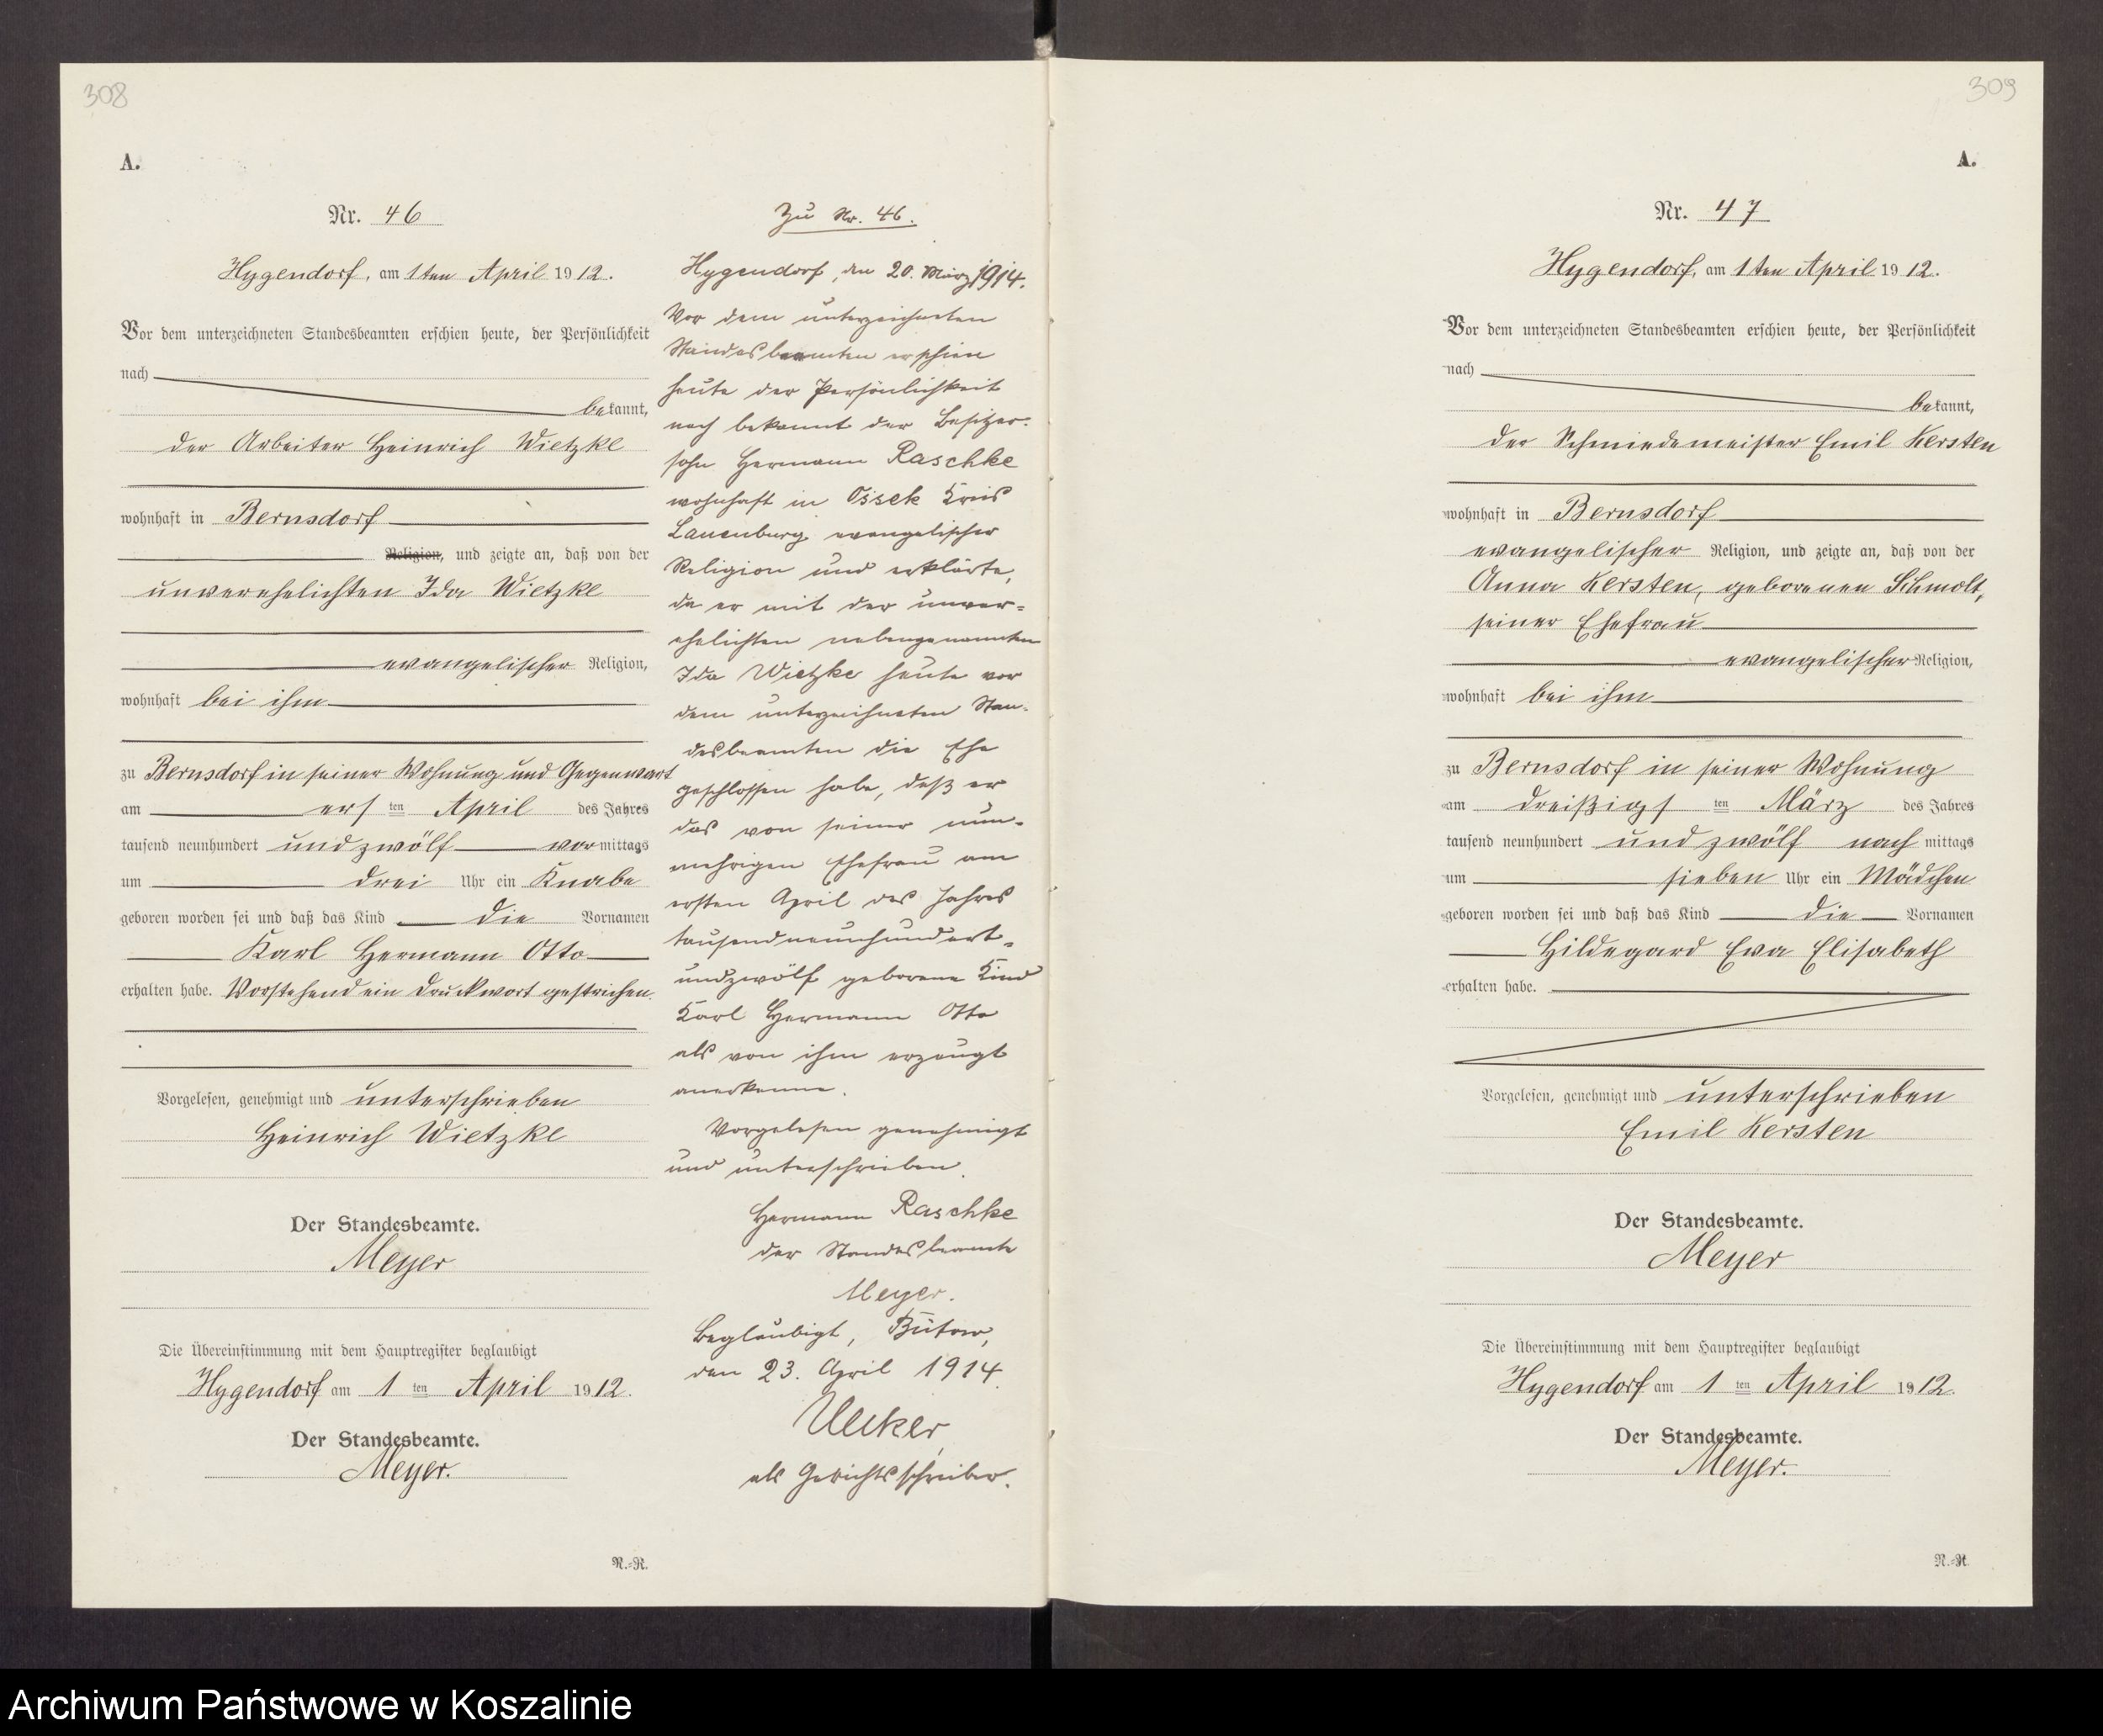 308
A.
Nr. 46
Hygendorf, am 1ten April 1912.
Vor dem unterzeichneten Standesbeamten erschien heute, der Persönlichkeit
nach
bekannt,
der Arbeiter Heinrich Wietzke
wohnhaft in Bernsdorf
Religion, und zeigte an, daß von der
unverehelichten Ida Wietzke
evangelischer Religion,
wohnhaft bei ihm
zu Bernsdorf in seiner Wohnung und Gegenwart
am ersten April des Jahres
tausend neunhundert und zwölf vormittags
um drei Uhr ein Knabe
geboren worden sei und daß das Kind die Vornamen
Karl Hermann Otto
erhalten habe. Vorstehend ein Druckwort gestrichen.
Vorgelesen, genehmigt und unterschrieben
Heinrich Wietzke
Der Standesbeamte.
Meyer
Die Übereinstimmung mit dem Hauptregister beglaubigt
Hygendorf am 1ten April 1912.
Der Standesbeamte.
Meyer.
N.-R.
Zu Nr. 46.
Hygendorf, den 20. März 1914.
Vor dem unterzeichneten
Standesbeamten erschien
heute der Persönlichkeit
nach bekannt der Besitzer-
sohn Hermann Raschke
wohnhaft in Ossek Kreis
Lauenburg evangelischer
Religion und erklärte,
da er mit der unver-
ehelichten nebengenannten
Ida Wietzke heute vor
dem unterzeichneten Stan-
desbeamten die Ehe
geschlossen habe, daß er
das von seiner nun-
mehrigen Ehefrau am
ersten April des Jahres
tausendneunhundert-
undzwölf geborene Kind
Karl Hermann Otto
als von ihm erzeugt
anerkenne.
Vorgelesen genehmigt
und unterschrieben.
Hermann Raschke
der Standesbeamte
Meyer.
Beglaubigt, Bütow,
den 23. April 1914.
Uecker,
als Gerichtsschreiber.
309
A.
Nr. 47
Hygendorf, am 1ten April 1912.
Vor dem unterzeichneten Standesbeamten erschien heute, der Persönlichkeit
nach
bekannt,
der Schmiedemeister Emil Kersten
wohnhaft in Bernsdorf
evangelischer Religion, und zeigte an, daß von der
Anna Kersten, geborenen Schmolt,
seiner Ehefrau
evangelischer Religion,
wohnhaft bei ihm
zu Bernsdorf in seiner Wohnung
am dreißigsten März des Jahres
tausend neunhundert und zwölf nachmittags
um sieben Uhr ein Mädchen
geboren worden sei und daß das Kind die Vornamen
Hildegard Eva Elisabeth
erhalten habe.
Vorgelesen, genehmigt und unterschrieben
Emil Kersten
Der Standesbeamte.
Meyer
Die Übereinstimmung mit dem Hauptregister beglaubigt
Hygendorf am 1ten April 1912.
Der Standesbeamte.
Meyer.
N.-R.
Archiwum Państwowe w Koszalinie